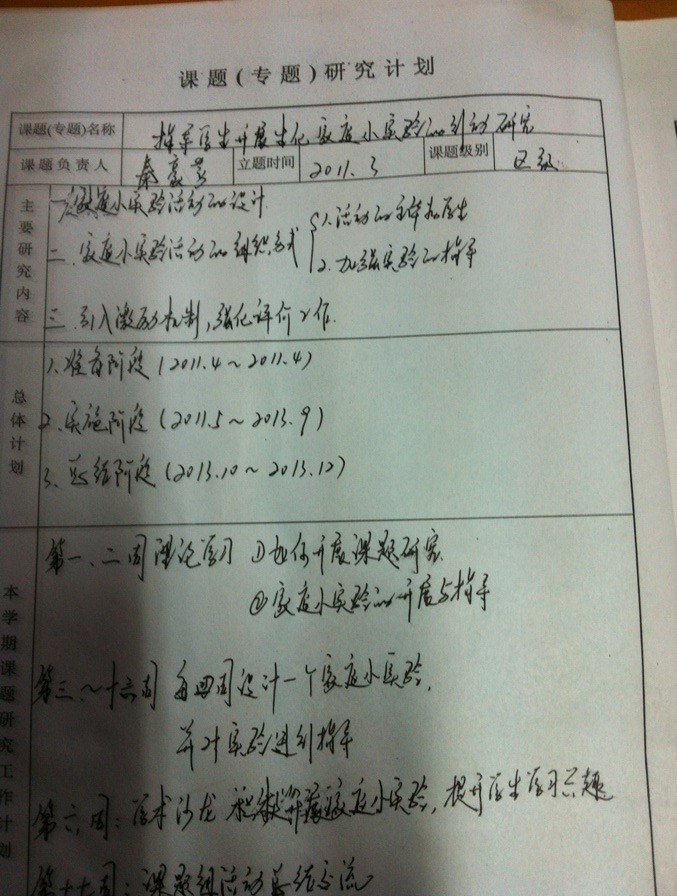 课题(专题)研究计划
课题(专题)名称 指导学生开展生化家庭小实验的行动研究
课题负责人 秦 立题时间 2011.3 课题级别 区级
主要研究内容
一、家庭小实验活动的设计
二、家庭小实验活动的组织形式 1.活动的主体为学生
2.加强实验的指导
三、引入激励机制,强化评价工作.
总体计划
1、准备阶段(2011.4~2011.4)
2、实施阶段(2011.5~2013.9)
3、总结阶段(2013.10~2013.12)
本学期课题研究工作计划
第一、二周 理论学习 ①如何开展课题研究
②家庭小实验的开展与指导
第三~十六周 每四周设计一个家庭小实验,
并对实验进行指导
第六周:学术沙龙 开展家庭小实验,提升学生学习兴趣
第十九周:课题组活动总结交流